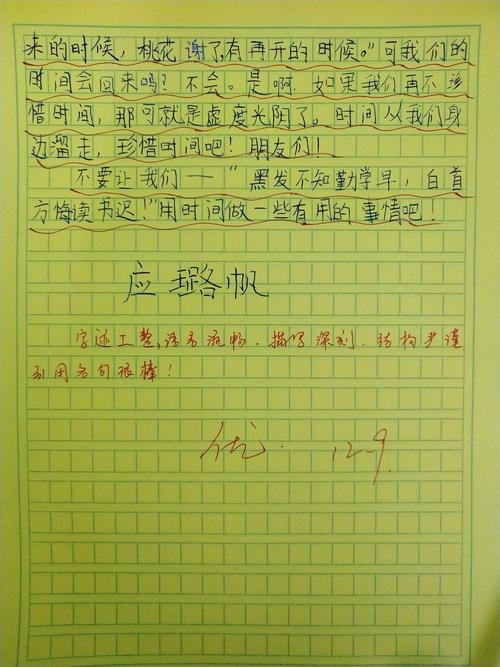 来的时候，桃花谢了，有再开的时候。”可我们的
时间会回来吗？不会。是啊，如果我们再不珍
惜时间，那可就是虚度光阴了。时间从我们身
边溜走，珍惜时间吧！朋友们！
不要让我们一“黑发不知勤学早，白首
方悔读书迟！”用时间做一些有用的事情吧！
应璐帆
字迹工整，语言流畅．描写深刻．结构严谨
引用名句很棒！
优． 12-9.